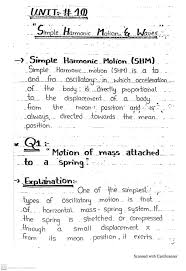 UNIT: # 10
"Simple Harmonic Motion & Waves"
→ Simple Harmonic Motion (SHM)
Simple Harmonic motion (SHM) is a to
and fro oscillatory in which acceleration
of the body is directly proportional
to the displacement of a body
from the mean position and is
always directed towards the mean
position.
Q1:-
"Motion of mass attached
to a spring"
→ Explanation:-
One of the simplest
types of oscillatory motion is that
of horizontal mass-spring system. If
the spring is stretched or compressed
through a small displacement x
from its mean position, it exerts
Scanned with CamScanner